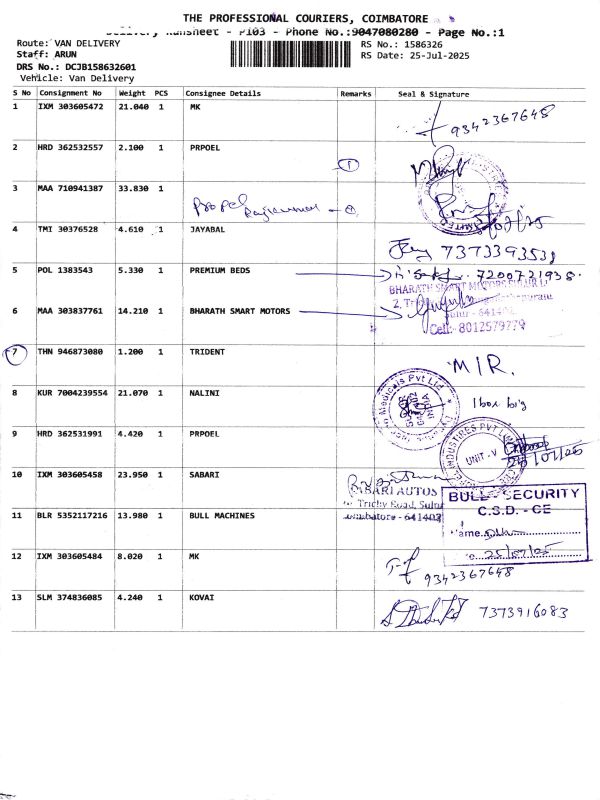 THE PROFESSIONAL COURIERS, COIMBATORE
Delivery Runsheet - P103 - Phone No.:9047080280 - Page No.:1
Route: VAN DELIVERY
RS No.: 1586326
Staff: ARUN
RS Date: 25-Jul-2025
DRS No.: DCJB158632601
Vehicle: Van Delivery
S No Consignment No Weight PCS Consignee Details Remarks Seal & Signature
1 IXM 303605472 21.040 1 MK
9342367648
2 HRD 362532557 2.100 1 PRPOEL
1
3 MAA 710941387 33.830 1
Propel
4 TMI 30376528 4.610 1 JAYABAL
7373393531
5 POL 1383543 5.330 1 PREMIUM BEDS
7200721935
BHARATH SMART MOTORS SULUR
6 MAA 303837761 14.210 1 BHARATH SMART MOTORS
Sulur - 641402
Cell: 8012579779
7 THN 946873080 1.200 1 TRIDENT
M/R.
8 KUR 7004239554 21.070 1 NALINI
Medicals Pvt Ltd
1 box big
9 HRD 362531991 4.420 1 PRPOEL
INDUSTRIES PVT
UNIT - V
25/07/25
10 IXM 303605458 23.950 1 SABARI
SABARI AUTOS
Trichy Road, Sulur
Coimbatore - 641402
11 BLR 5352117216 13.980 1 BULL MACHINES
BULL - SECURITY
C.S.D. - CE
Name.
25/07/25
12 IXM 303605484 8.020 1 MK
9342367648
13 SLM 374836085 4.240 1 KOVAI
7373916083